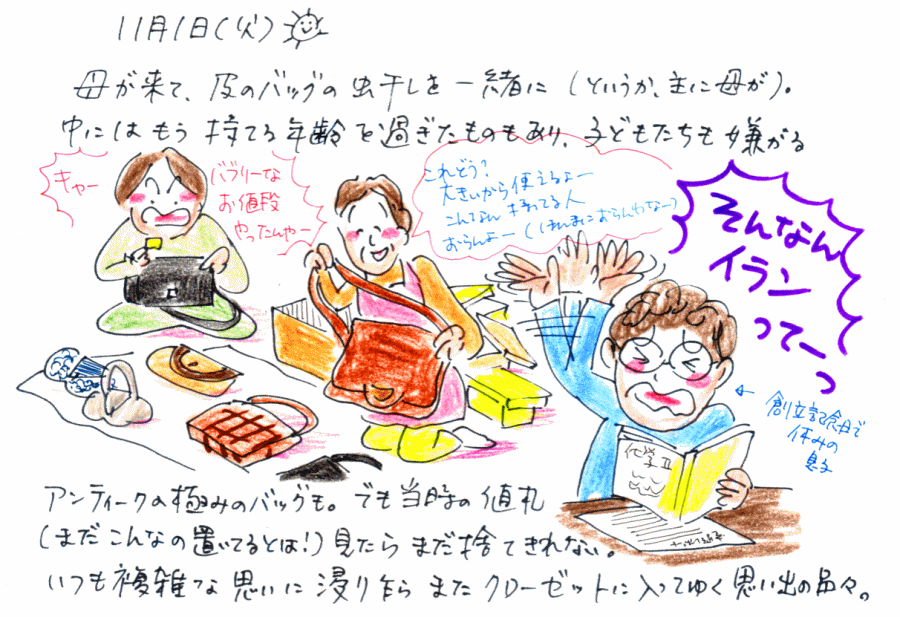 11月1日(火)
母が来て、皮のバッグの虫干しを一緒に(というか、主に母が)。
中にはもう持てる年齢を過ぎたものもあり、子どもたちも嫌がる
キャー
バブリーな
お値段
やったんやー
これどう?
大きいから使えるよー
こんなん持ってる人
おらんよー(ほんまにおらんわなー)
そんなん
イラン
ってーっ
←創立記念日で
休みの
息子
化学II
アンティークの極みのバッグも。でも当時の値札
(まだこんなの置いてるとは!)見たらまだ捨てきれない。
いつも複雑な思いに浸り乍らまたクローゼットに入ってゆく思い出の品々。